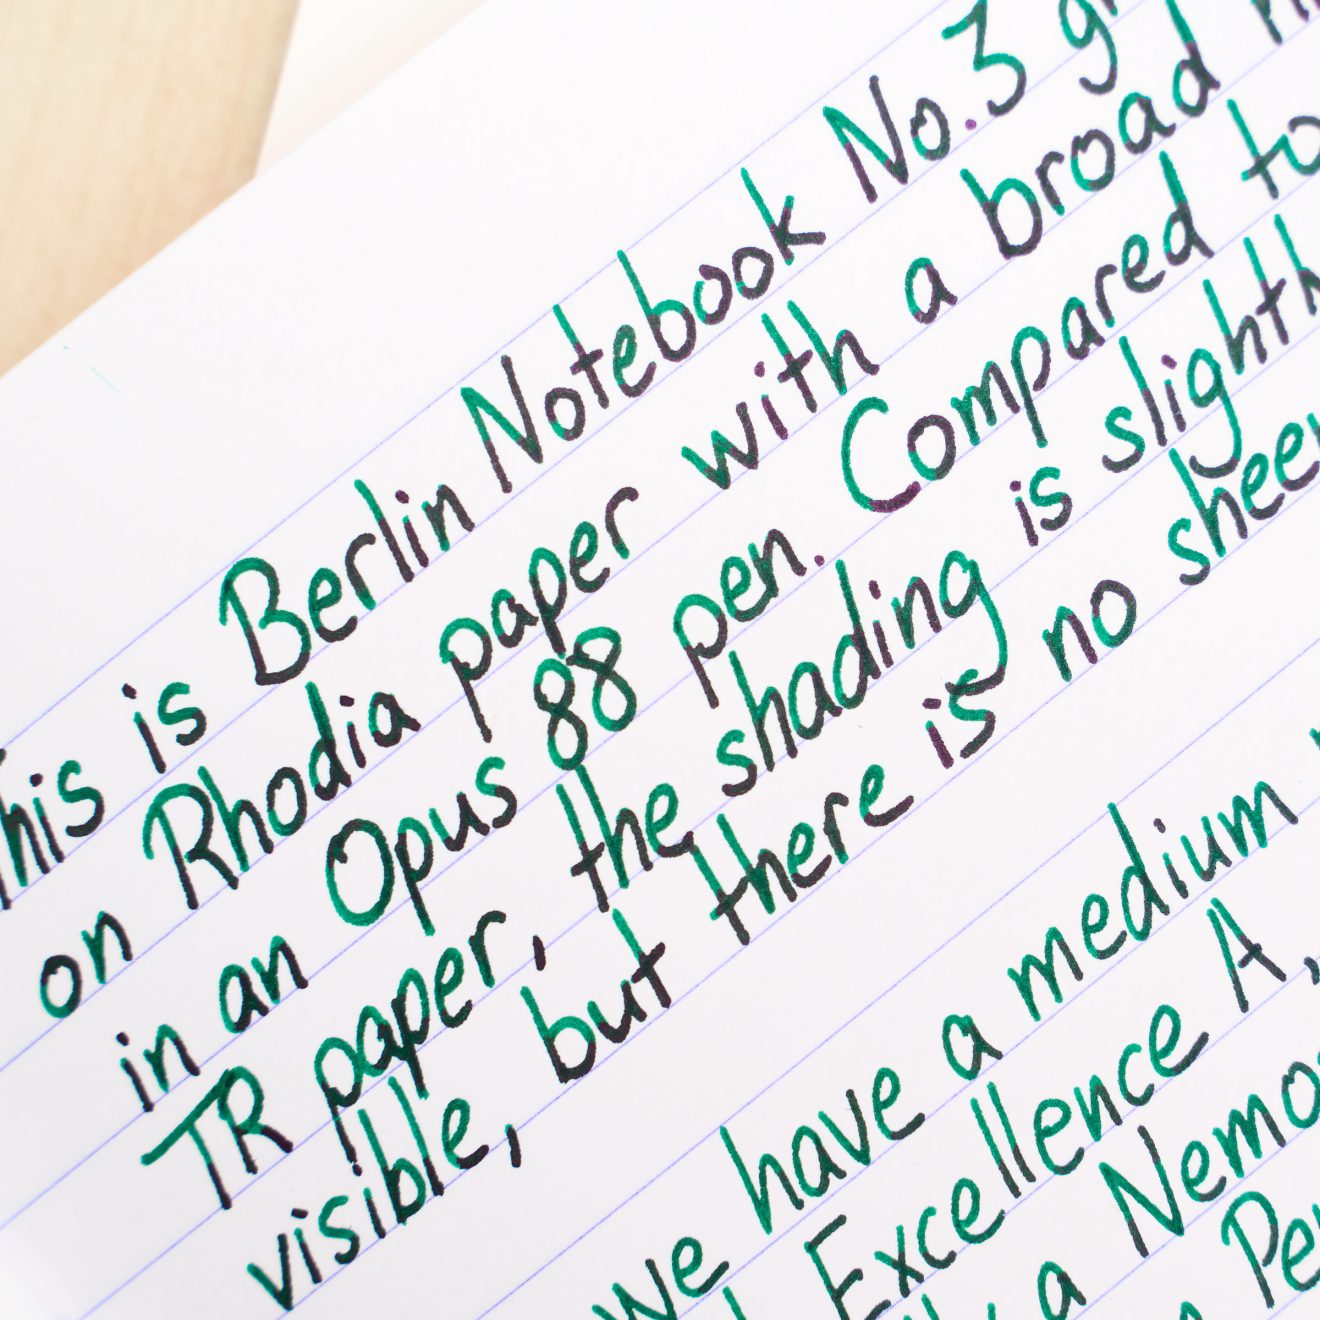 This is Berlin Notebook No.3
on Rhodia paper with a broad
in an Opus 88 pen. Compared to
TR paper, the shading is
visible, but there is no
we have a medium
Excellence A,
a